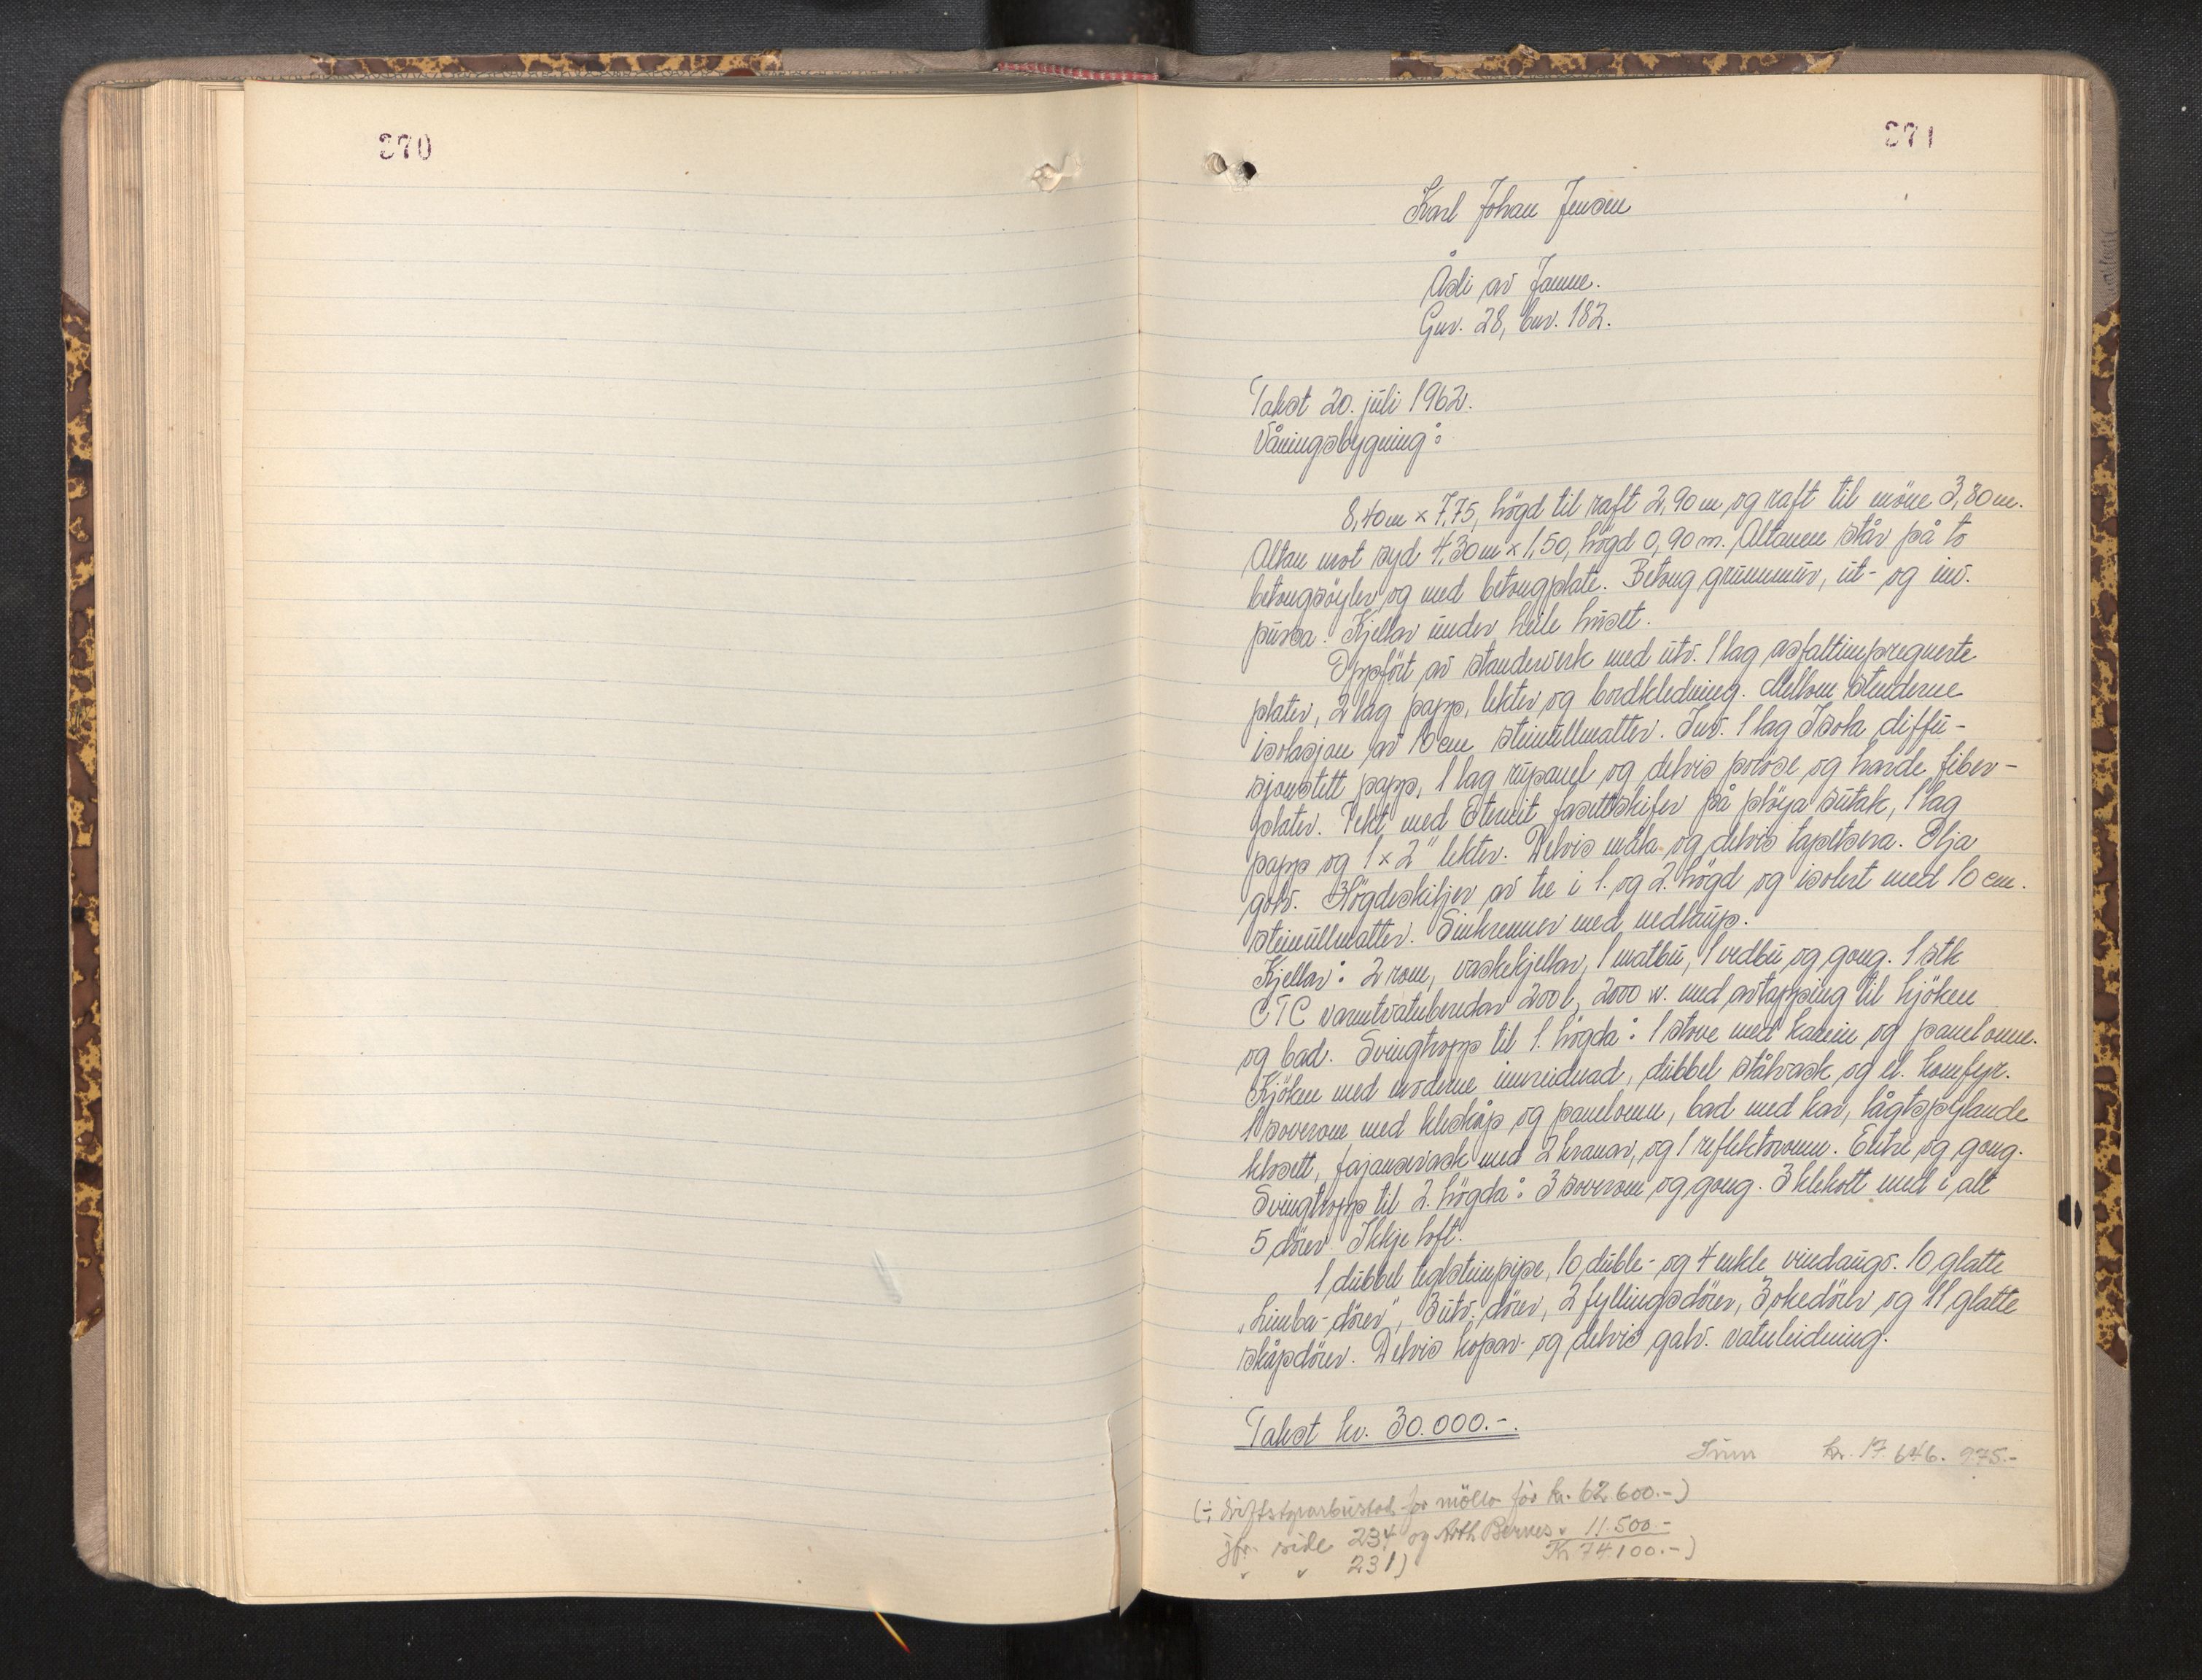 370
371
Karl Johan Jensen
Åsli av Jamne.
Gnr. 28, bnr. 182.
Takst 20. juli 1962.
Våningsbygning:
8,40m x 7,75, högd til raft 2,90 m og raft til möne 3,80 m.
Altan mot syd 4,30m x 1,50, högd 0,90 m. Altanen står på to
betongsöyler og med betongplate. Betong grunnmur, ut- og inv.
pussa. Kjellar under heile huset.
Oppfört av standerverk med utv. 1 lag asfaltimpregnerte
plater, 2 lag papp, lekter og bordkledning. Mellom stenderne
isolasjon av 10 cm steinullmatter. Inv. 1 lag Isola diffu-
sjonstett papp, 1 lag rupanel og delvis poröse og harde fiber-
plater. Tekt med Eternit fasettskifer på plöya sutak, 1 lag
papp og 1 x 2" lekter. Delvis måla og delvis tapetsera. Olja
golv. Högdeskiljer av tre i 1. og 2. högd og isolert med 10 cm.
steinullmatter. Sinkrenner med nedlaup.
Kjellar: 2 rom, vaskekjellar, 1 matbu, 1 vedbu og gong. 1 stk
CTC varmtvatnberedar 200 l, 2000 w. med avtapping til kjöken
og bad. Svingtropp til 1. högda: 1 stove med kamin og panelomn.
Kjöken med moderne innreidnad, dubbel stålvask og el. komfyr.
1 soverom med kleskåp og panelomn, bad med kar, lågtspylande
klosett, fajansevask med 2 kranar, og 1 reflektoromn. Entre og gong.
Svingtropp til 2. högda: 3 soverom og gong. 3 klekott med i alt
5 dörer. Ikkje loft.
1 dubbel teglsteinpipe, 10 duble- og 4 enkle vindaugo. 10 glatte
„Limba-dörer", 3 utv. dörer, 2 fyllingsdörer, 3 okedörer og 11 glatte
skåpdörer. Delvis kopar- og delvis galv. vatnleidning.
Takst kr. 30.000.-.
Sum kr. 17.646.975.-
(÷ for mölla for kr. 62.600.-)
jfr. side 234 og Arth Bernes " 11.500.-
" " 231) Kr 74.100.-)